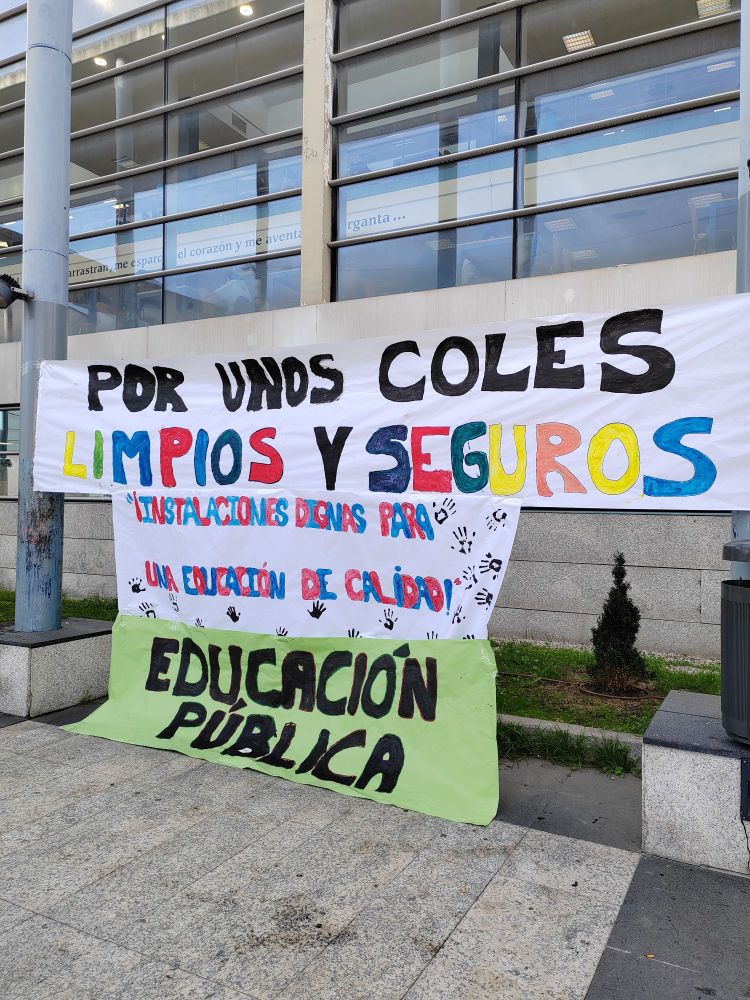 arrastran, me esparcen el corazón y me aventan
garganta ...
POR UNOS COLES
LIMPIOS Y SEGUROS
"¡INSTALACIONES DIGNAS PARA
UNA EDUCACIÓN DE CALIDAD!"
EDUCACIÓN
PÚBLICA